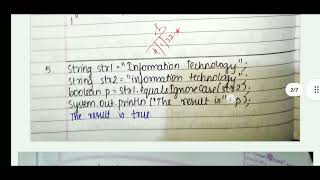 5. String str1 = "Information Technology";
string str2 = "information technology";
boolean p = str1.equalsIgnoreCase(str2);
System.out.println("The result is" + p);
The result is true.
2/7